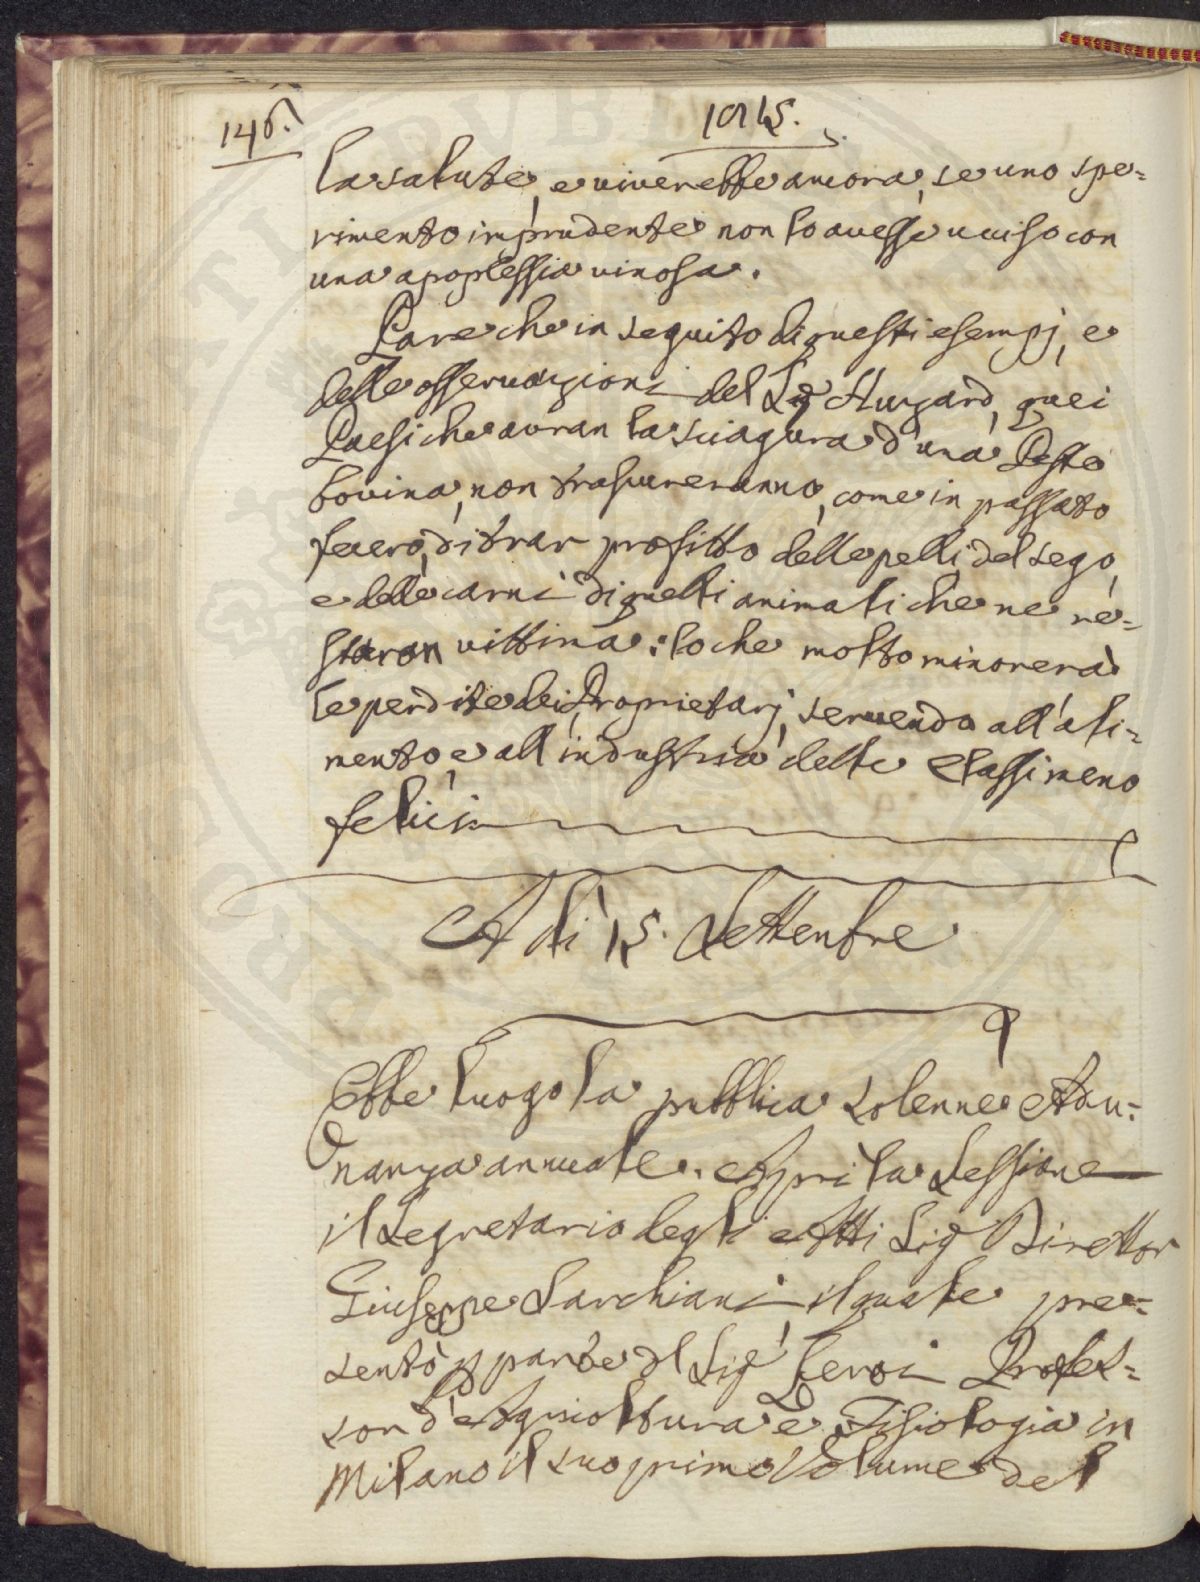 146.
1815.
la salute, e viverebbe ancora, se uno spe=
rimento imprudente non lo avesse ucciso con
una apoplessia vinosa.
Pare che in seguito di questi esempj, e
delle osservazioni del Sig Huzard, quei
Paesi che avran la sciagura d'una Peste
bovina, non trascureranno, come in passato
fecero, di trar profitto delle pelli, del sego,
e delle carni di quelli animali che ne re=
staran vittima: lo che molto minorerà
le perdite dei Proprietarj, servendo all'ali=
mento, e all'industria delle Classi meno
felici
A dì 15. Settembre
Ebbe luogo la pubblica solenne Adu=
nanza annuale. Aprì la Sessione
il Segretario degli Atti Sig Direttor
Giuseppe Sarchiani, il quale pre=
sentò p parte dl Sig Profes=
sor d'Agricoltura e Fisiologia in
Milano il suo primo Volume del